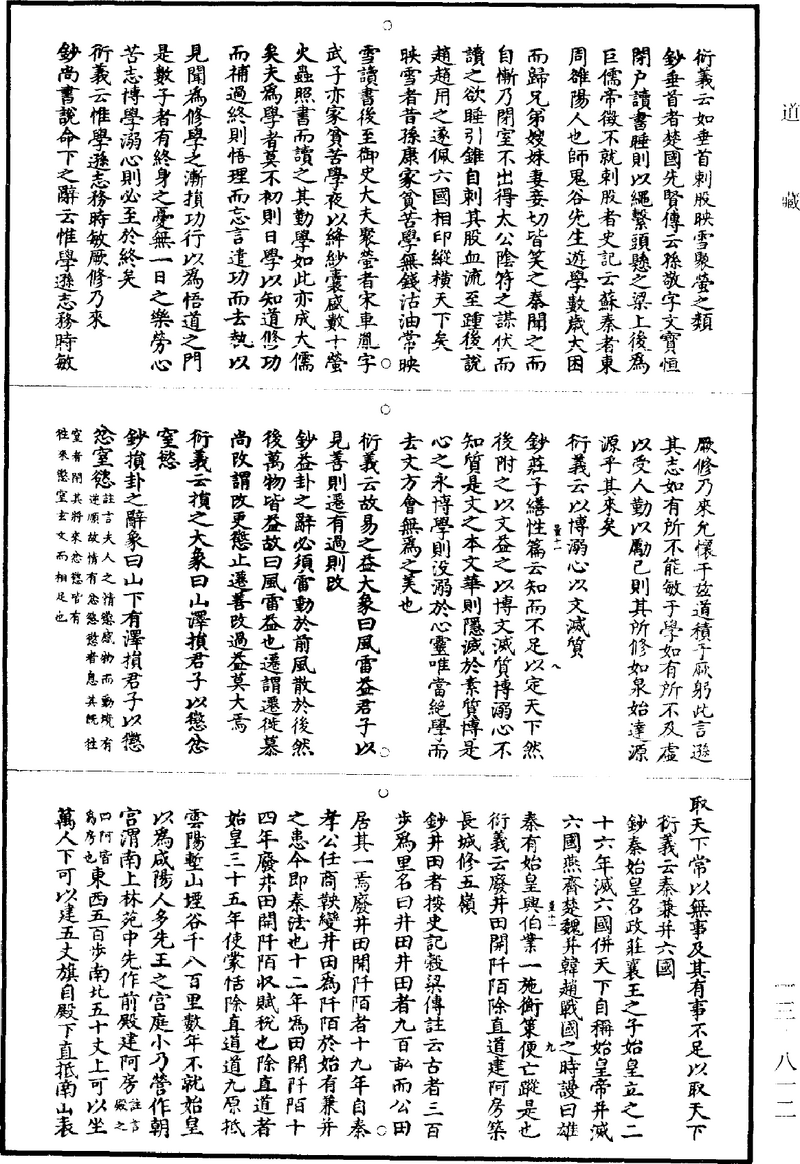 道藏
衍義云如垂首刺股映雪聚螢之類
鈔垂首者楚國先賢傳云孫敬字文寶恒
閉户讀書睡則以繩繫頭懸之梁上後為
巨儒帝徵不就刺股者史記云蘇秦者東
周雒陽人也師鬼谷先生遊學數歲大困
而歸兄弟嫂妹妻妾切皆笑之秦聞之而
自慚乃閉室不出得太公陰符之謀伏而
讀之欲睡引錐自刺其股血流至踵後說
趙趙用之遂佩六國相印縱橫天下矣
映雪者昔孫康家貧苦學無錢沽油常映
雪讀書後至御史大夫聚螢者宋車胤字
武子亦家貧苦學夜以絳紗囊盛數十螢
火蟲照書而讀之其勤學如此亦成大儒
矣夫為學者莫不初則日學以知道修功
而補過終則悟理而忘言遣功而去執以
見聞為修學之漸損功行以為悟道之門
是數子者有終身之憂無一日之樂勞心
苦志博學溺心則必至於終矣
衍義云惟學遜志務時敏厥修乃來
鈔尚書說命下之辭云惟學遜志務時敏
厥修乃來允懷于兹道積于厥躬此言遜
其志如有所不能敏于學如有所不及虛
以受人勤以勵己則其所修如泉始達源
源乎其來矣
衍義云以博溺心以文滅質
鈔莊子繕性篇云知而不足以定天下然
後附之以文益之以博文滅質博溺心不
知質是文之本文華則隱滅於素質博是
心之末博學則没溺於心靈唯當絕學而
去文方會無為之美也
衍義云故易之益大象曰風雷益君子以
見善則遷有過則改
鈔益卦之辭必須雷動於前風散於後然
後萬物皆益故曰風雷益也遷謂遷徙慕
尚改謂改更懲止遷善改過益莫大焉
衍義云損之大象曰山澤損君子以懲忿
窒慾
鈔損卦之辭象曰山下有澤損君子以懲
忿窒慾註言夫人之情感物而動境有
逆順故情有忿慾懲者息其既往
窒者閉其將來忿慾皆有
往來懲窒玄文而相足也
取天下常以無事及其有事不足以取天下
衍義云秦兼并六國
鈔秦始皇名政莊襄王之子始皇立之二
十六年滅六國併天下自稱始皇帝并滅
六國燕齊楚魏并韓趙戰國之時謾曰雄
秦有始皇興伯業一施衡策便亡蹤是也
衍義云廢井田開阡陌除直道建阿房築
長城修五嶺
鈔井田者按史記穀梁傳註云古者三百
步為里名曰井田井田者九百畝而公田
居其一焉廢井田開阡陌者十九年自秦
孝公任商鞅變井田為阡陌於始有兼并
之患今即秦法也十二年為田開阡陌十
四年廢井田開阡陌收賦稅也除直道者
始皇三十五年使蒙恬除直道道九原抵
雲陽塹山堙谷千八百里數年不就始皇
以為咸陽人多先王之宮庭小乃營作朝
宮渭南上林苑中先作前殿建阿房註言
殿之
曰阿皆
為房也東西五百步南北五十丈上可以坐
萬人下可以建五丈旗自殿下直抵南山表
一三·八一二